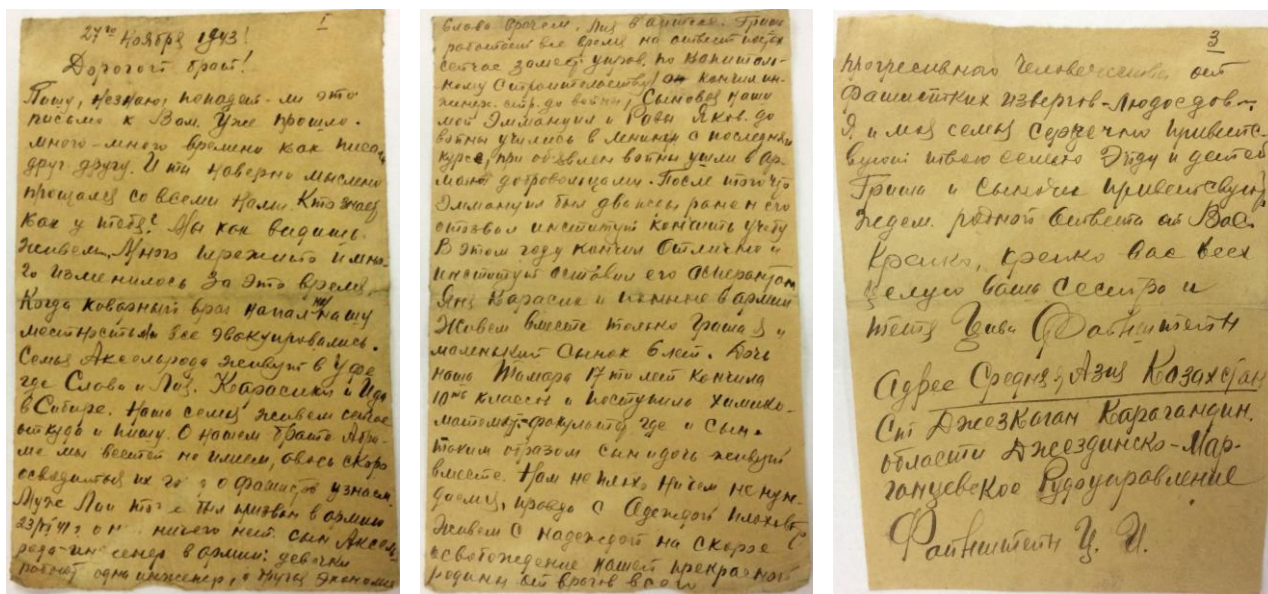 27го Ноября 1943!
I
Дорогой брат!
Пишу, незнаю, попадет-ли это
письмо к Вам. Уже прошло
много-много времени как писали
друг другу. И ты наверно мысленно
прощался со всеми нами. Кто знает
как у тебя? Мы как видишь
живем. Много пережито и мно-
го изменилось за это время.
Когда коварный враг напал на нашу
местность мы все эвакуировались.
Семья Аксельрода живут в Уфе
где Слава и Лиза. Карасики и Ида
в Сибири. Наша семья живем сейчас
откуда и пишу. О нашем брате Абра-
ме мы вестей не имеем, авось скоро
освободиться их го от фашистов узнаем.
Муж Лизы тоже был призван в армию
23/VI 41 о н ничего нет. Сын Аксель-
рода-инженер в армии; девочки
работают одна инженер, а другая Эконом
Слава врачем. Лиза в аптеке. Гриша
работает все время на ответ постах
сейчас замест. управ. по капиталь-
ному строительству он кончил ин-
женер. стр. до войны, Сыновья наши
мой Эммануил и Равы Яков. до
войны учились в Ленингр с последних
курсе, при объявлен войны ушли в ар-
мию добровольцами. После того что
Эммануил был дважды ранен его
отозвал институт кончить учебу
В этом году кончил отлично и
институт оставил его аспирантом
Яня Карасик и поныне в армии
Живем вместе только Гриша я и
маленький сынок 6 лет. Дочь
наша Тамара 17ти лет кончила
10ть классов и поступила химико-
математ. факультет где и сын.
таким образом сын и дочь живут
вместе. Нам не плохо ничем не нуж-
даемся, правда с одеждой плохова
Живем с надеждой на скорое
освобождение нашей прекрасной
родины от врагов всего
3
прогресивного человечества от
фашистких извергов-людоедов
Я и моя семья сердечно приветс-
вуют твою семью Эйду и детей
Гриша и сыночек приветствуют
Ждем родной ответа от Вас.
Крепко, крепко вас всех
целую ваша сестра и
тетя Цива Файнштейн
Адрес Средняя Азия Казахстан
Ст Джезказган Карагандин.
области Джездинско-Мар-
ганцевское Рудоуправление
Файнштейн Ц. И.